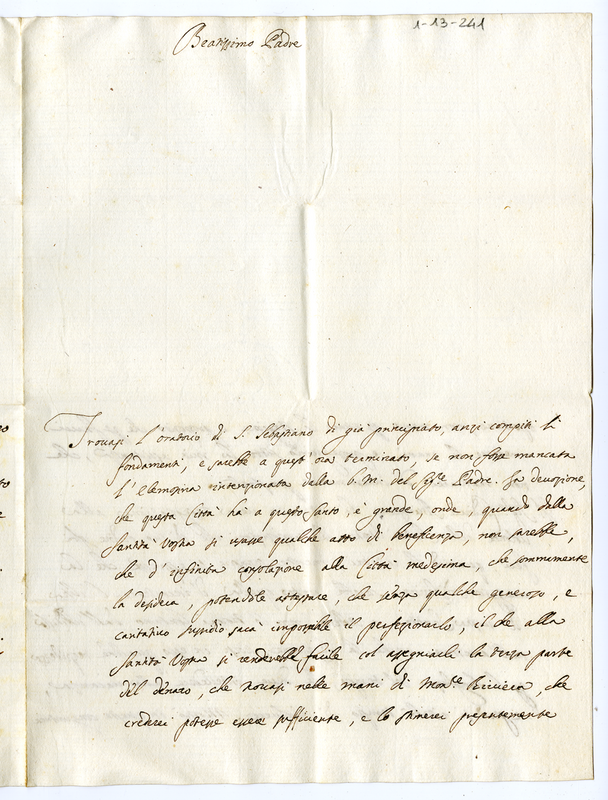 1-13-241
Beatissimo Padre
Trovasi l'oratorio di S. Sebastiano di già principiato, anzi compiti li
fondamenti, e sarebbe a quest'ora terminato, se non fosse mancata
l'Elemosina intenzionata dalla b. m. del Sig.e Padre. La devozione,
che questa Città hà a questo Santo, è grande, onde, quando dalla
Santità Vostra si usasse qualche atto di beneficenza, non sarebbe,
che d'infinita consolazione alla Città medesima, che sommamente
la desidera, potendole attestare, che senza qualche generoso, e
caritativo sussidio sarà impossibile il perfezionarlo, il che alla
Santità Vostra si renderebbe facile col assegniarli la terza parte
del denaro, che trovasi nelle mani di Mon.re Riviera, che
crederei potesse essere sufficiente, e lo stimerei presentemente